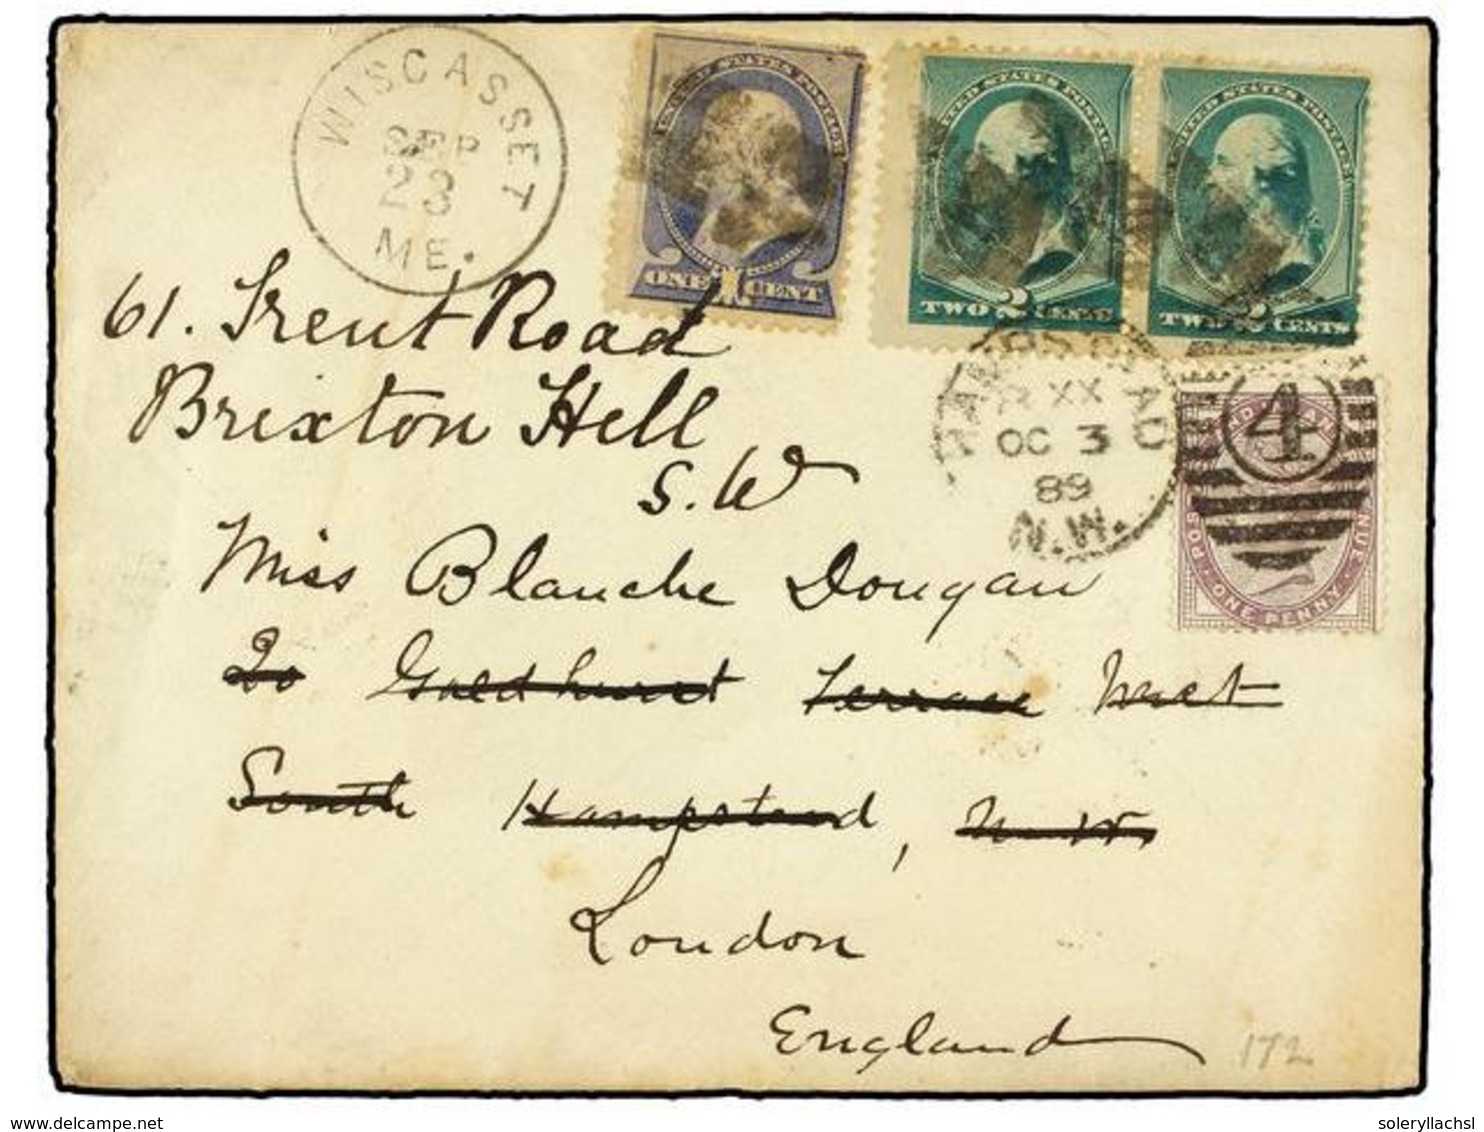 WISCASSET
SEP
23
ME.
UNITED STATES POSTAGE
ONE 1 CENT
UNITED STATES POSTAGE
TWO 2 CENTS
UNITED STATES POSTAGE
TWO 2 CENTS
61. Trent Road
Brixton Hill
S.W
HAMPSTEAD
XX
OC 3
89
N.W.
4
ONE PENNY
Miss Blanche Dougan
20 Goldhurst Terrace West
South Hampstead, N.W.
London
England
172
soleryllachsl